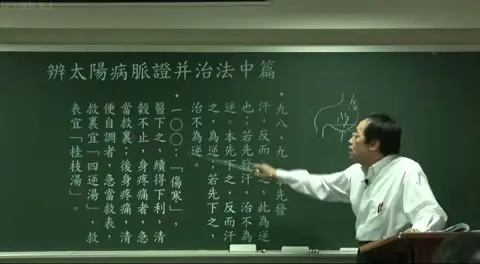 辨太陽病脈證并治法中篇
•九八、九 先發
汗，反而 ，此為逆
也；若先發汗，治不為
逆。本先下之，反而汗
之，為逆；若先下之，
治不為逆。
•一〇〇：「傷寒」，
醫下之，續得下利，清
穀不止，身疼痛者，急
當救裏；後身疼痛，清
便自調者，急當救表，
救裏宜「四逆湯」，救
表宜「桂枝湯」。